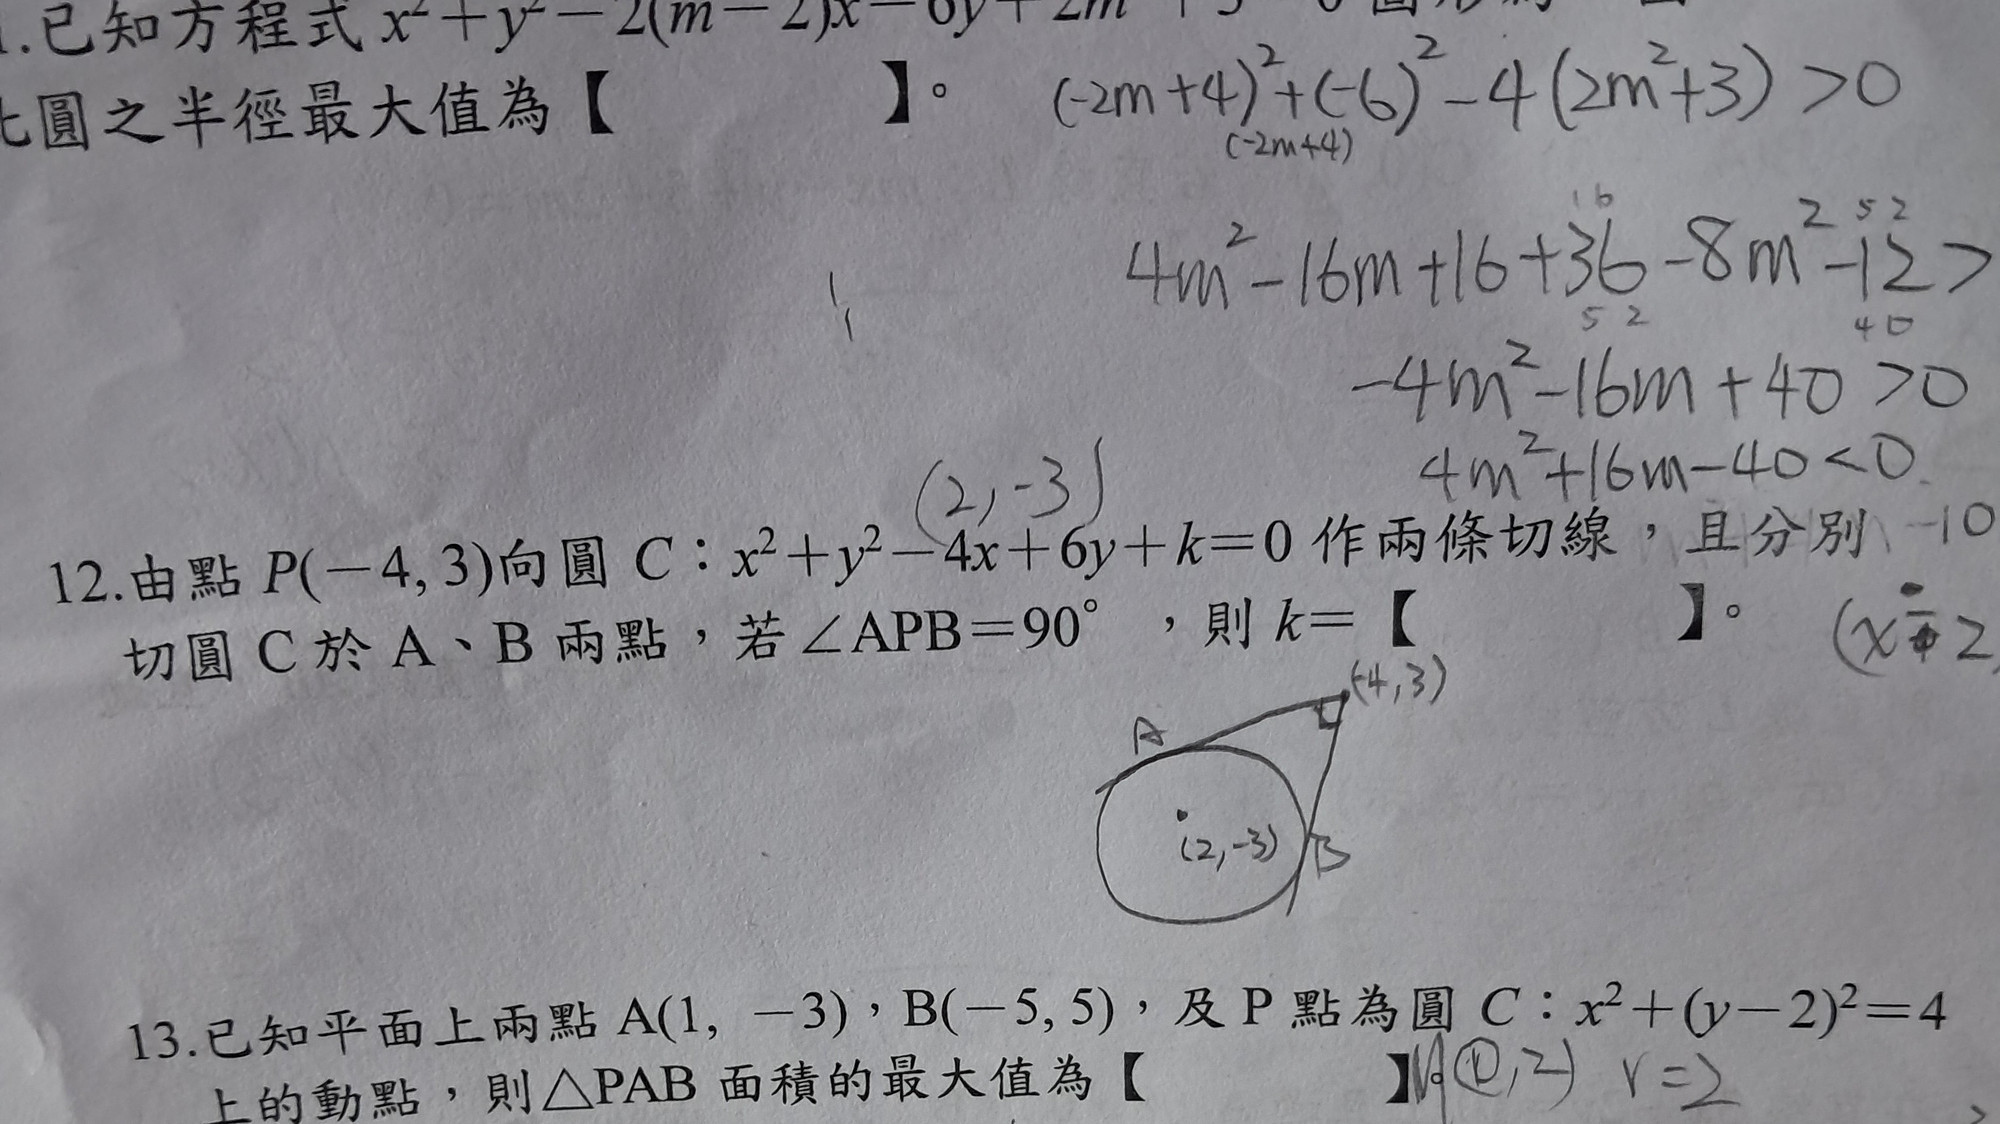 .已知方程式 x²+y²−2(m−2)x−6y+2m
圓之半徑最大值為【 】。
(-2m+4)²+(-6)²-4(2m²+3)>0
(-2m+4)
16 52
4m²-16m+16+36-8m²-12>
52 40
-4m²-16m+40>0
4m²+16m-40<0
-10
(2,-3)
12.由點 P(−4, 3)向圓 C：x²+y²−4x+6y+k=0 作兩條切線，且分別
切圓 C 於 A、B 兩點，若∠APB=90°，則 k=【 】。
(-4,3)
A
(2,-3)
B
13.已知平面上兩點 A(1, −3)，B(−5, 5)，及 P 點為圓 C：x²+(y−2)²=4
上的動點，則△PAB 面積的最大值為【 】。
(0,2) r=2